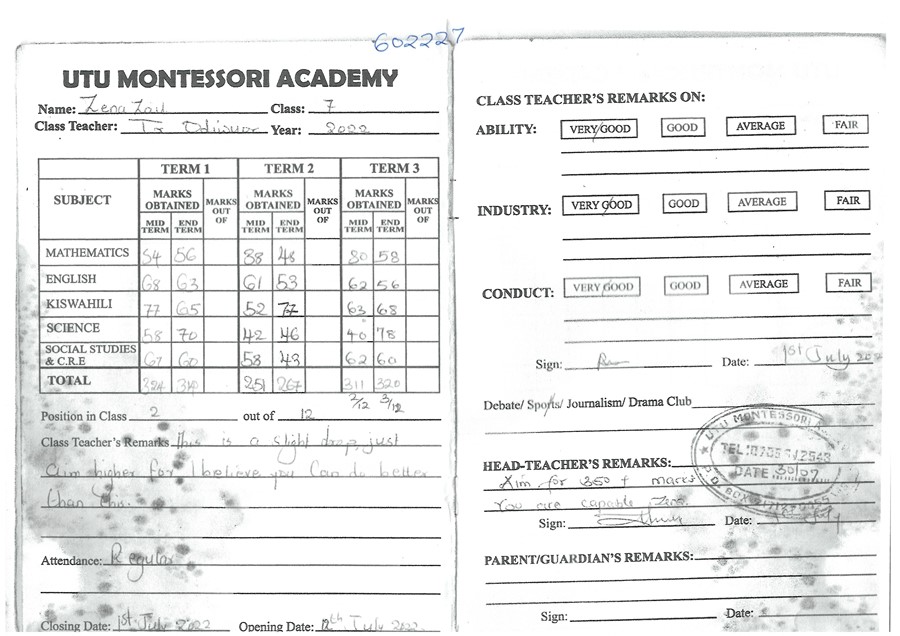 602227
UTU MONTESSORI ACADEMY
Name: Zena Class: 7
Class Teacher: Tr Year: 2022
TERM 1 TERM 2 TERM 3
SUBJECT MARKS OBTAINED MARKS OUT OF MARKS OBTAINED MARKS OUT OF MARKS OBTAINED MARKS OUT OF
MID TERM END TERM MID TERM END TERM MID TERM END TERM
MATHEMATICS 54 56 38 48 80 58
ENGLISH 68 63 61 53 62 56
KISWAHILI 77 65 52 77 63 68
SCIENCE 58 70 42 46 40 78
SOCIAL STUDIES & C.R.E 67 60 58 43 62 60
TOTAL 324 251 267 311 320
2/12 3/12
Position in Class 2 out of 12
Class Teacher's Remarks This is a slight drop, just
aim higher for I believe you can do better
than this.
Attendance: Regular
Closing Date: 1st July 2022 Opening Date: July 2022
CLASS TEACHER'S REMARKS ON:
ABILITY: VERY GOOD GOOD AVERAGE FAIR
INDUSTRY: VERY GOOD GOOD AVERAGE FAIR
CONDUCT: VERY GOOD GOOD AVERAGE FAIR
Sign: Date: 1st July
Debate/ Sports/ Journalism/ Drama Club
UTU MONTESSORI
DATE 30/07
HEAD-TEACHER'S REMARKS:
Aim for 350+ marks
You are capable
Sign: Date: July
PARENT/GUARDIAN'S REMARKS:
Sign: Date: